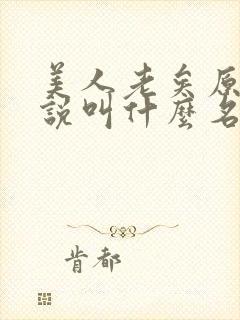 美人老矣原
說叫什麼名
肯都